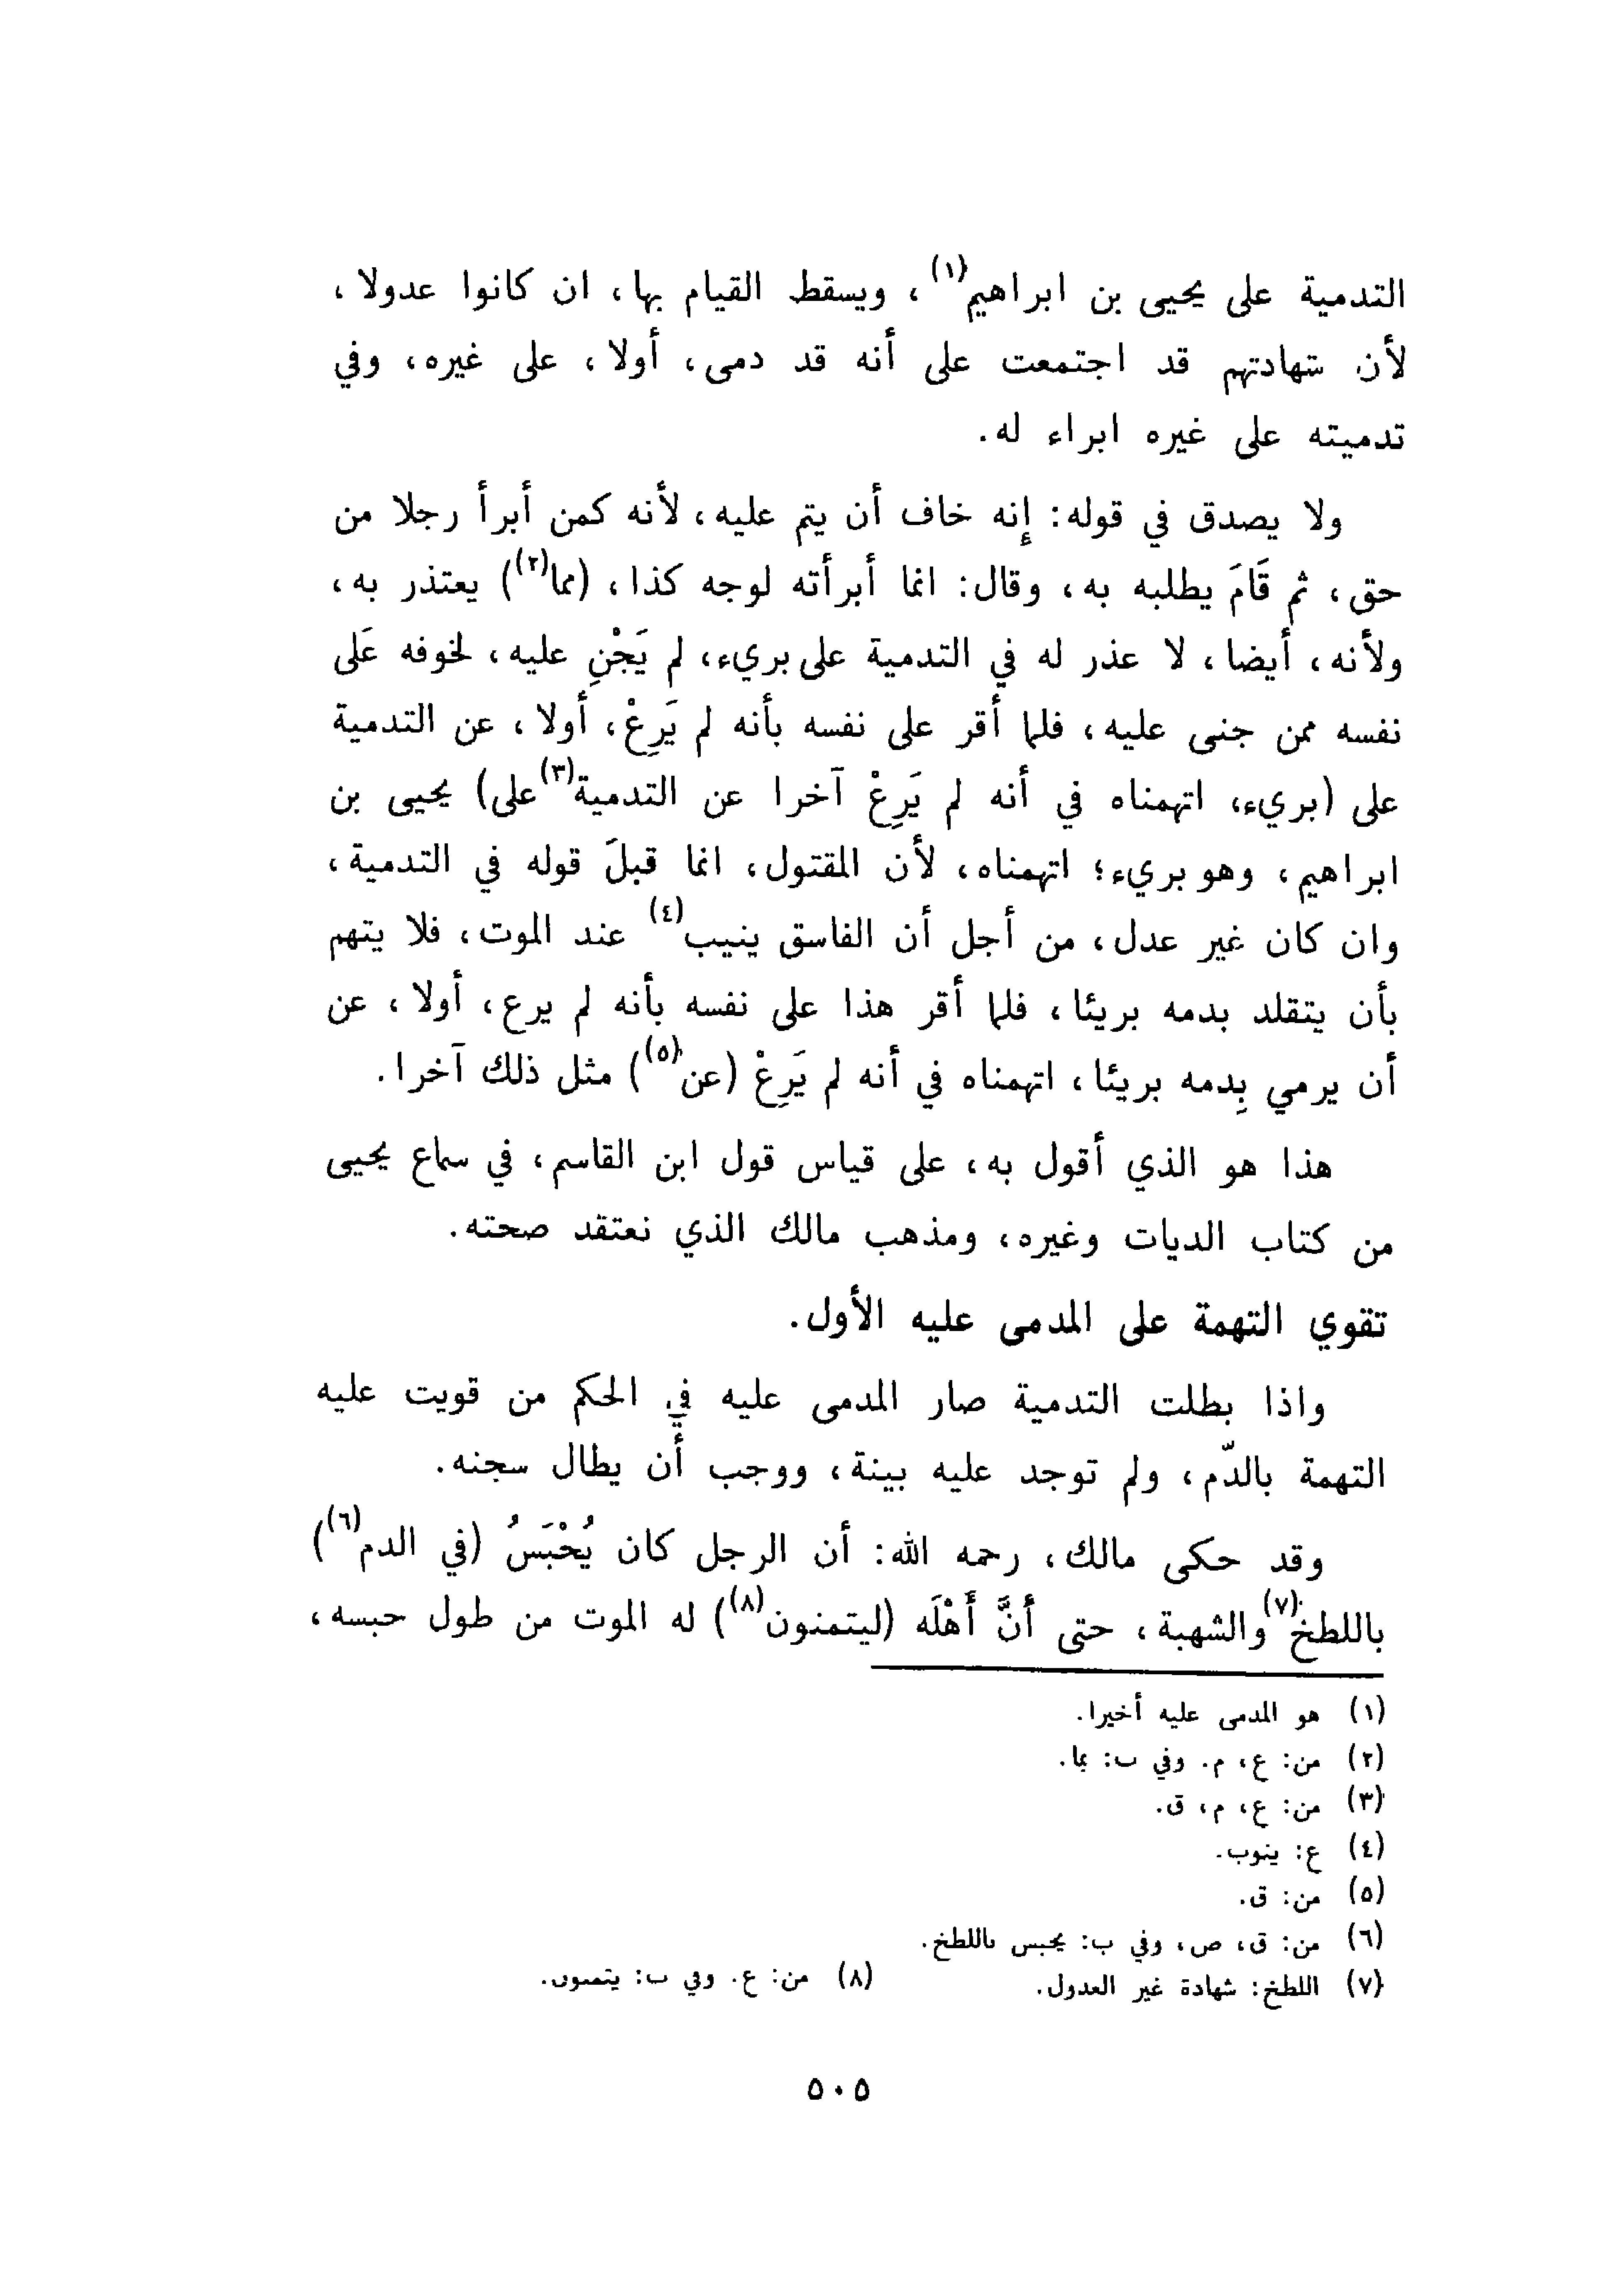 التدمية على يحيى بن ابراهيم(١)، ويسقط القيام بها، ان كانوا عدولا،
لأن شهادتهم قد اجتمعت على أنه قد دمى، أولا، على غيره، وفي
تدميته على غيره ابراء له.
ولا يصدق في قوله: إنه خاف أن يتم عليه، لأنه كمن أبرأ رجلا من
حق، ثم قَامَ يطلبه به، وقال: انما أبرأته لوجه كذا، (مما(٢)) يعتذر به،
ولأنه، أيضا، لا عذر له في التدمية على بريء، لم يَجْنِ عليه، لخوفه عَلى
نفسه ممن جنى عليه، فلما أقر على نفسه بأنه لم يَرِعْ، أولا، عن التدمية
على (بريء، اتهمناه في أنه لم يَرِعْ آخرا عن التدمية(٣)على) يحيى بن
ابراهيم، وهو بريء؛ اتهمناه، لأن المقتول، انما قبلَ قوله في التدمية،
وان كان غير عدل، من أجل أن الفاسق ينيب(٤) عند الموت، فلا يتهم
بأن يتقلد بدمه بريئا، فلما أقر هذا على نفسه بأنه لم يرع، أولا، عن
أن يرمي بِدمه بريئا، اتهمناه في أنه لم يَرِعْ (عن(٥)) مثل ذلك آخرا.
هذا هو الذي أقول به، على قياس قول ابن القاسم، في سماع يحيى
من كتاب الديات وغيره، ومذهب مالك الذي نعتقد صحته.
تقوي التهمة على المدمى عليه الأول.
واذا بطلت التدمية صار المدمى عليه في الحكم من قويت عليه
التهمة بالدّم، ولم توجد عليه بينة، ووجب أن يطال سجنه.
وقد حكى مالك، رحمه الله: أن الرجل كان يُحْبَسُ (في الدم(٦))
باللطخ(٧)والشهبة، حتى أَنَّ أَهْلَه (ليتمنون(٨)) له الموت من طول حبسه،
(١) هو المدمى عليه أخيرا.
(٢) من: ع، م. وفي ب: بما.
(٣) من: ع، م، ق.
(٤) ع: ينوب.
(٥) من: ق.
(٦) من: ق، ص، وفي ب: يحبس باللطخ.
(٧) اللطخ: شهادة غير العدول. (٨) من: ع. وفي ب: يتمنون.
٥٠٥